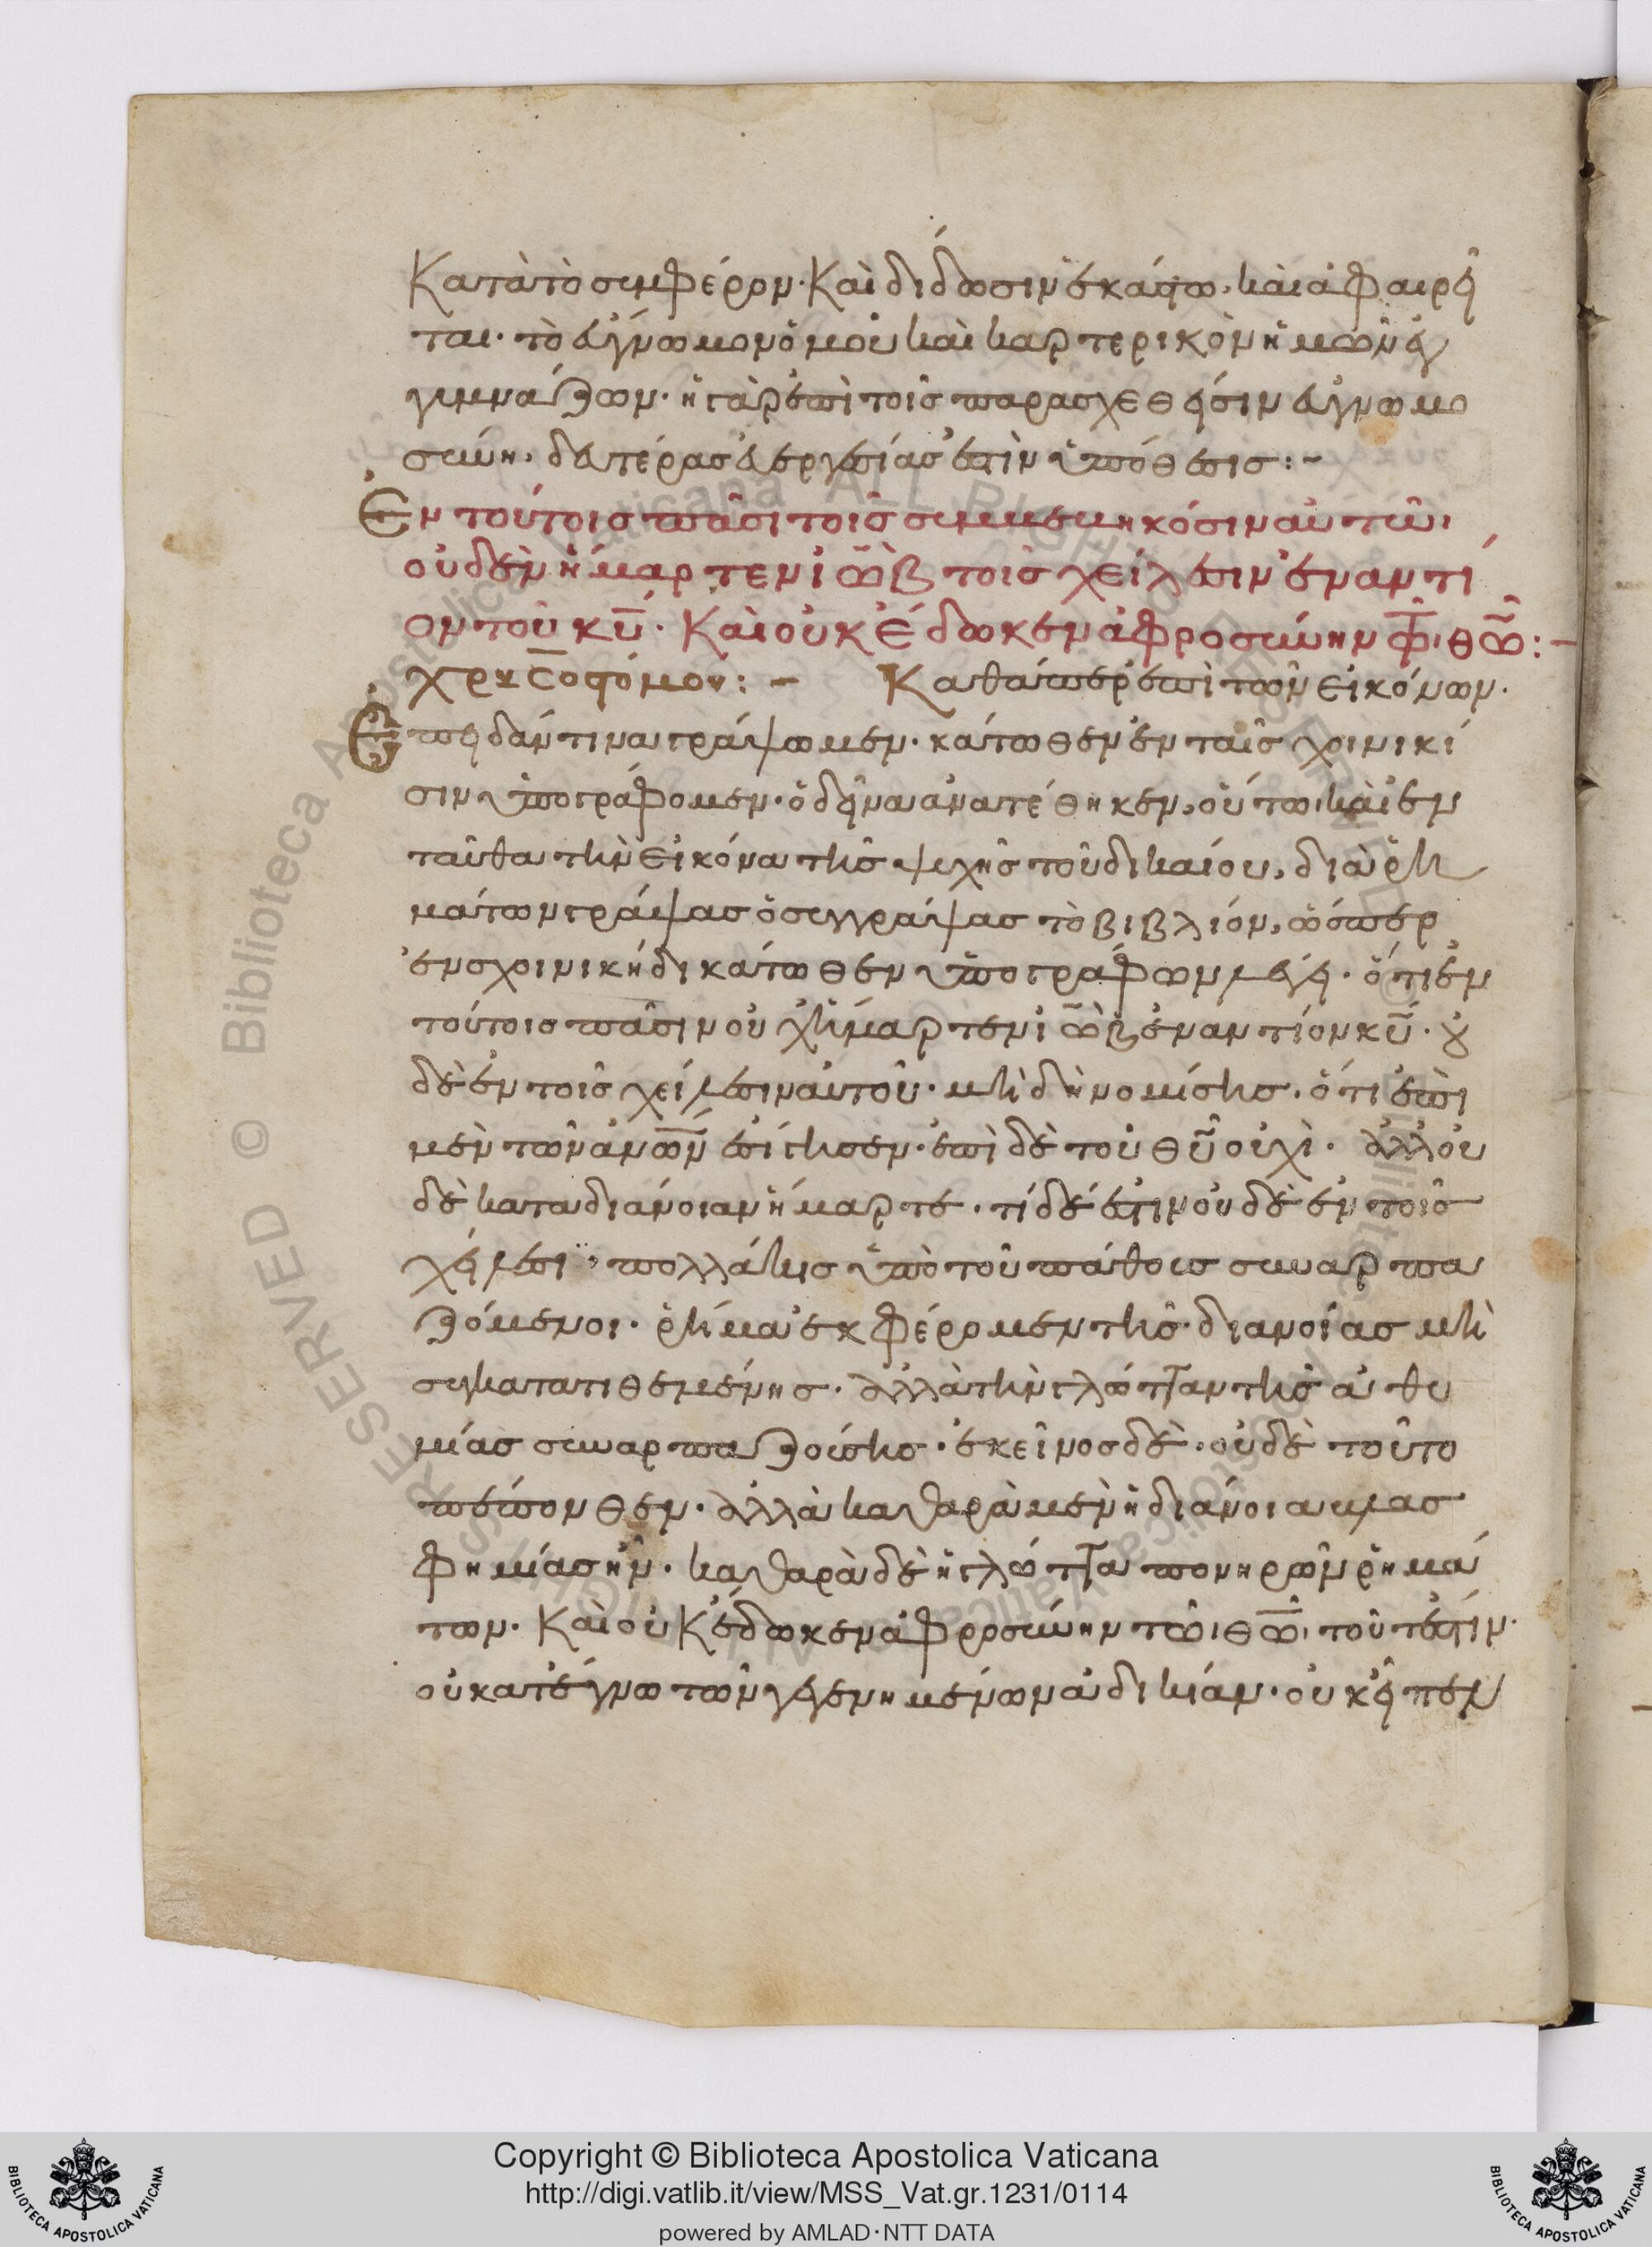 Κατὰ τὸ συμφέρον· Καὶ δίδωσιν ἑκάστω, καὶ ἀφαιρεῖ
ται· τὸ εὔγνωμον ὁμοῦ καὶ καρτερικὸν ἡμῶν ἐκ
γυμνάζων· ἡ γὰρ ἐπὶ τοῖς παρασχεθεῖσιν εὐγνωμο
σύνη, δευτέρας εὐεργεσίας ἐστὶν ὑπόθεσις :-
Ἐν τούτοις πᾶσι τοῖς συμβεβηκόσιν αὐτῶι
οὐδὲν ἥμαρτεν ἰὼβ τοῖς χείλεσιν ἐναντί
ον τοῦ κυ̅· Καὶ οὐκ ἔδωκεν ἀφροσύνην τῶι θω̅ :-
χρυσοστόμου :- Καθάπερ ἐπὶ τῶν εἰκόνων·
Ἐπειδάν τινα γράψωμεν· κάτωθεν ἐν ταῖς χοινικί
σιν ὑπογράφομεν· ὁ δεῖνα ἀνατέθηκεν, οὕτω καὶ ἐν
ταῦθα τὴν εἰκόνα τῆς ψυχῆς τοῦ δικαίου, διὰ ῥη
μάτων γράψας ὁ συγγράψας τὸ βιβλίον, ὥσπερ
ἐν σχοινικηδι κάτωθεν ὑπογράφων λέγει· ὅτι ἐν
τούτοις πᾶσιν οὐχ ἥμαρτεν ἰὼβ ἐναντίον κυ̅· οὐ
δὲ ἐν τοῖς χείλεσιν αὐτοῦ· μὴ δὴ νομίσης, ὅτι ἐπὶ
μὲν τῶν ἀνω̅ν ἐσίγησεν· ἐπὶ δὲ τοῦ θυ̅ οὐχὶ· ἀλλ οὐ
δὲ κατὰ διάνοιαν ἥμαρτε· τί δέ ἐστιν οὐδὲ ἐν τοῖς
χείλεσι· πολλάκις ὑπὸ τοῦ πάθους συναρπα
ζόμενοι· ῥήμα ἐκφέρομεν τῆς διανοίας μὴ
συγκατατιθεμένης· ἀλλὰ τὴν γλῶτταν τῆς ἀθυ
μίας συναρπαζούσης· ἐκεῖνος δὲ· οὐδὲ τοῦτο
πέπονθεν· ἀλλὰ καθαρὰ μὲν ἡ διάνοια βλασ
φημίας ἦν· καθαρὰ δὲ ἡ γλῶττα πονηρῶν ῥημά
των· Καὶ οὐκ ἔδωκεν ἀφροσύνην τῶι θω̅ι τοῦτ ἐστίν·
οὐ κατέγνω τῶν γεγενημένων ἀδικίαν· οὐκ εἶπεν